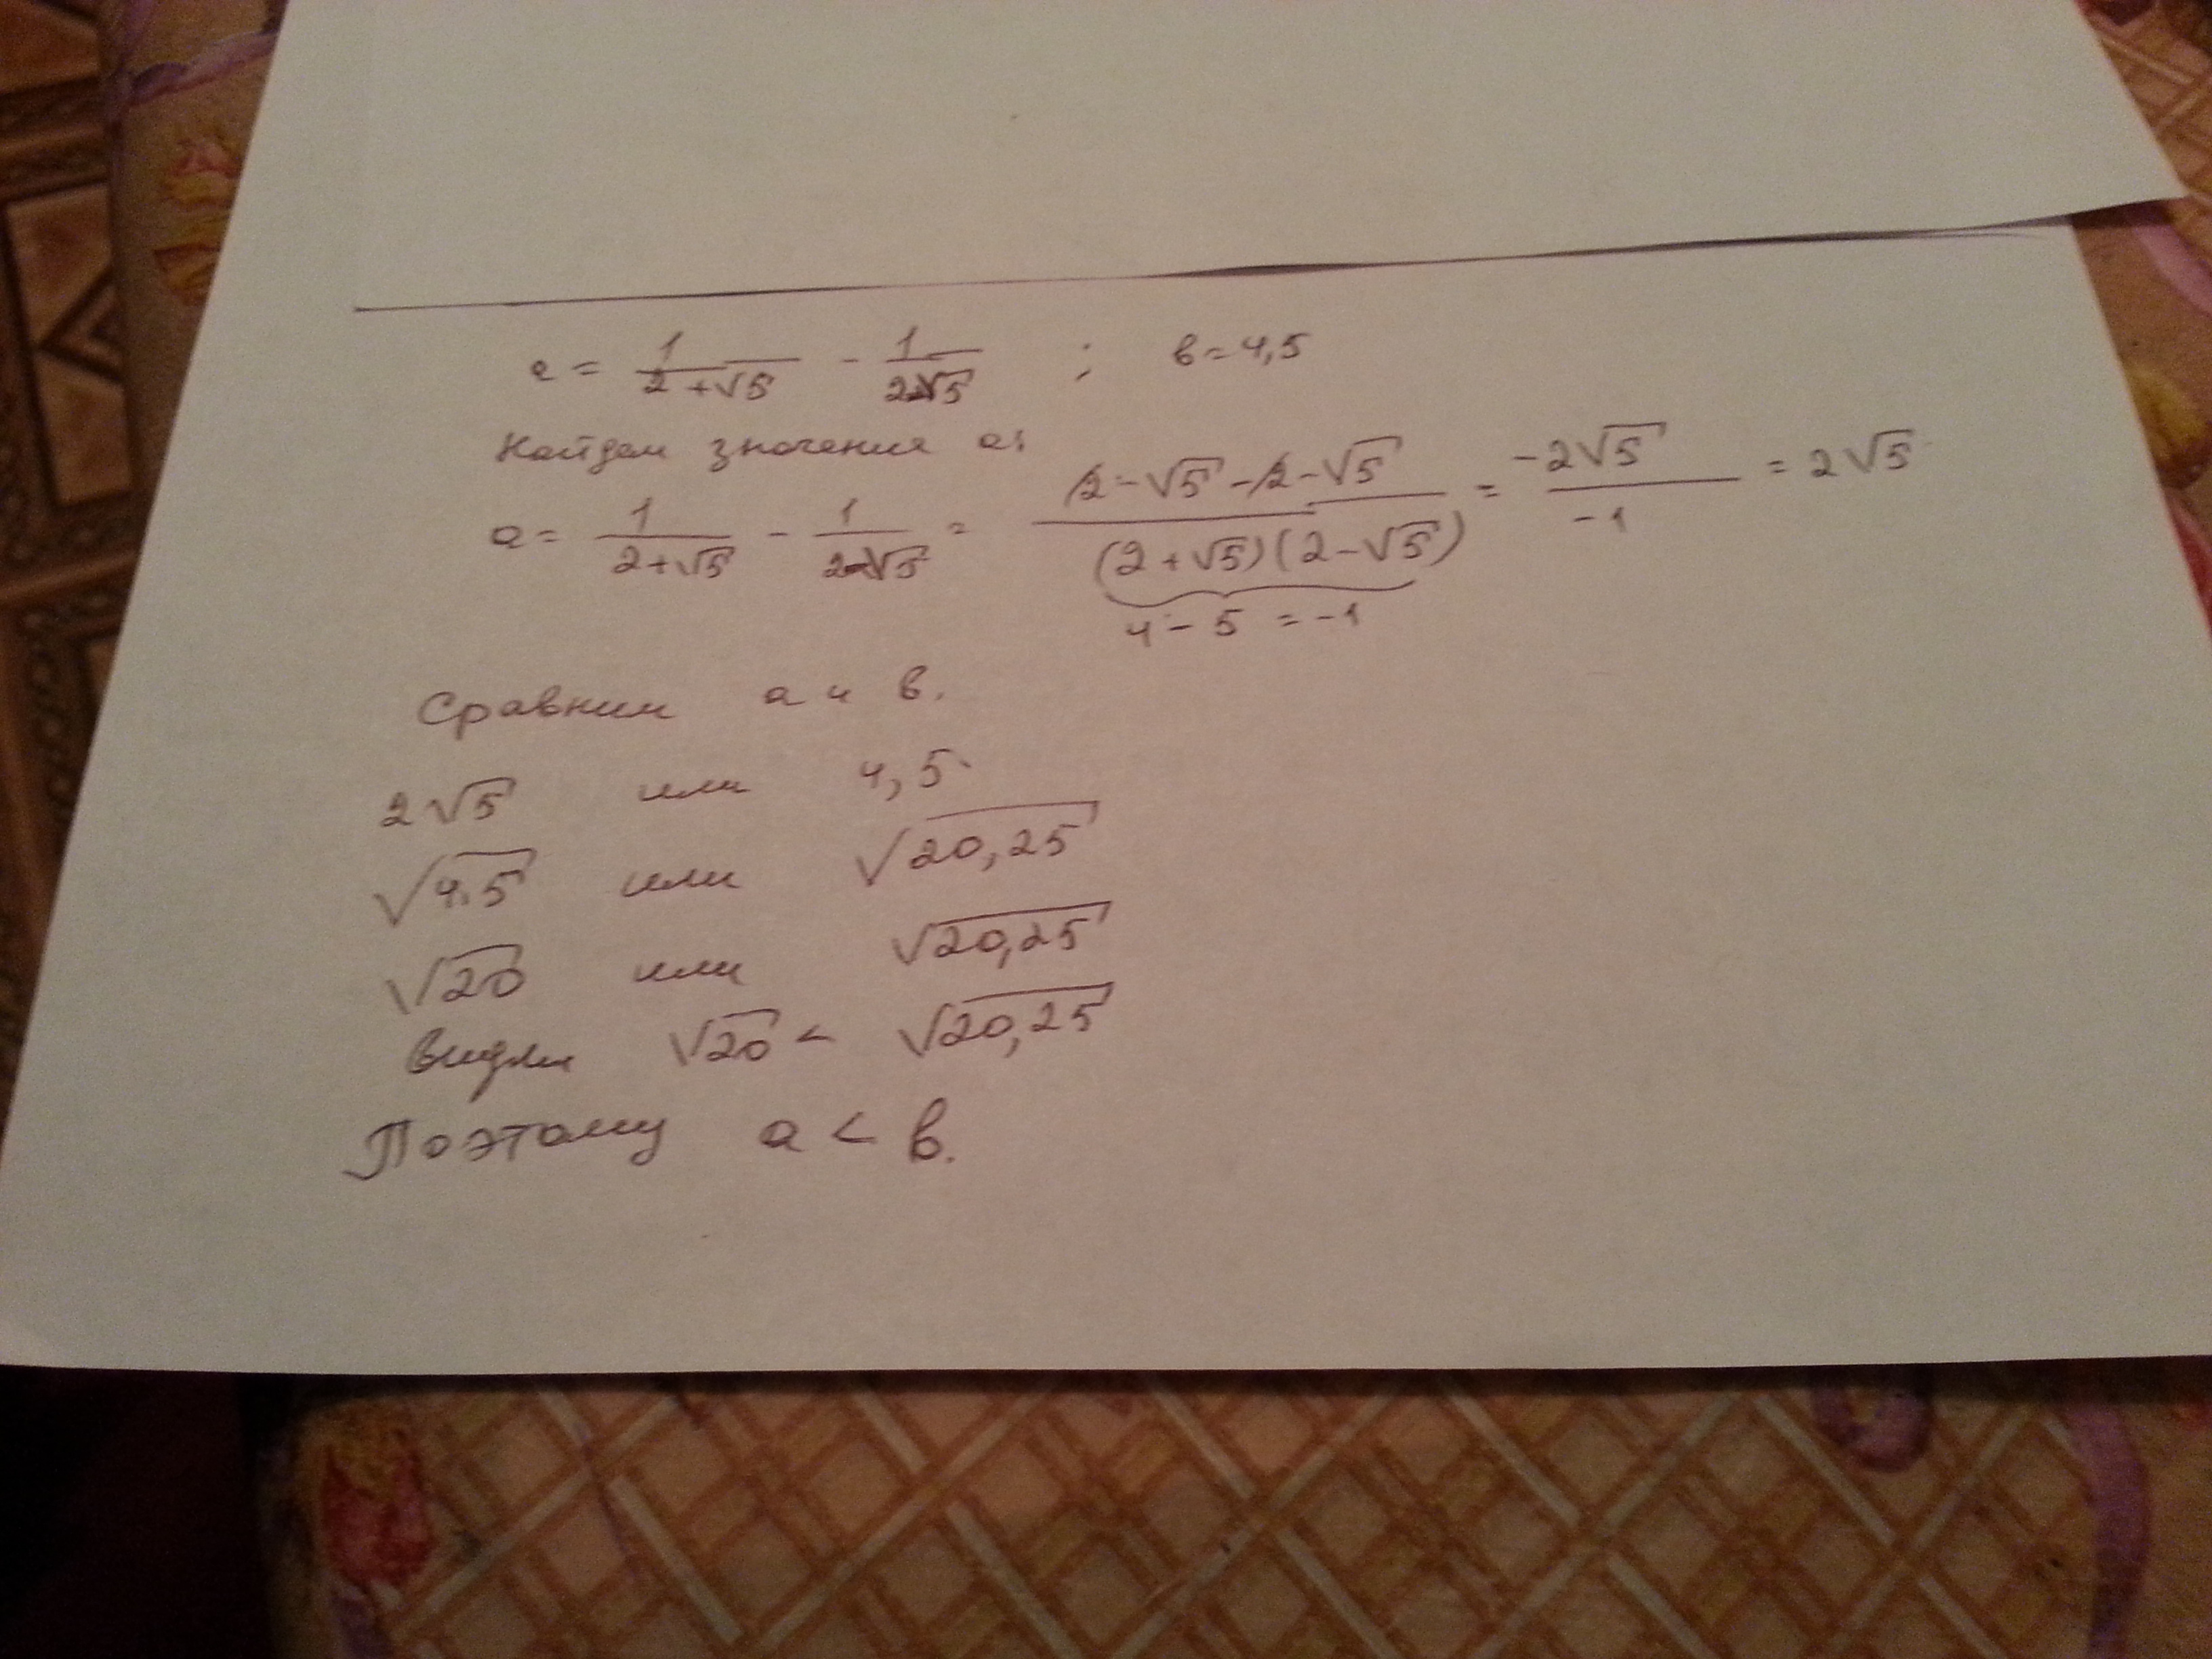 a = 1/(2+√5) - 1/(2-√5) ; в = 4,5
Найдем значения а:
a = 1/(2+√5) - 1/(2-√5) = (2-√5-2-√5)/((2+√5)(2-√5)) = -2√5/-1 = 2√5
4 - 5 = -1
Сравним а и в.
2√5 или 4,5
√4·5 или √20,25
√20 или √20,25
Видим √20 < √20,25
Поэтому а < в.